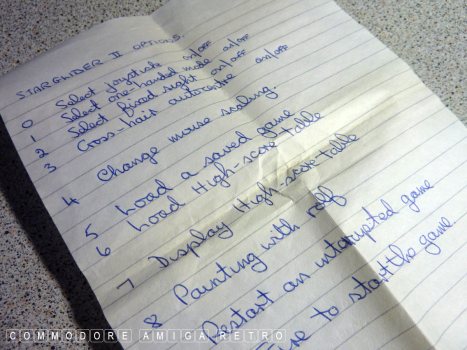 STARGLIDER II OPTIONS
0 Select joystick on/off
1 Select one-handed mode on/off
2 Select fixed sight on/off
3 Cross-hair autocentre on/off
4 Change mouse scaling.
5 Load a saved game
6 Load High-score table
7 Display High-score table
8 Painting with rolf
Restart an interupted game
Fire to start the game.
COMMODORE AMIGA RETRO